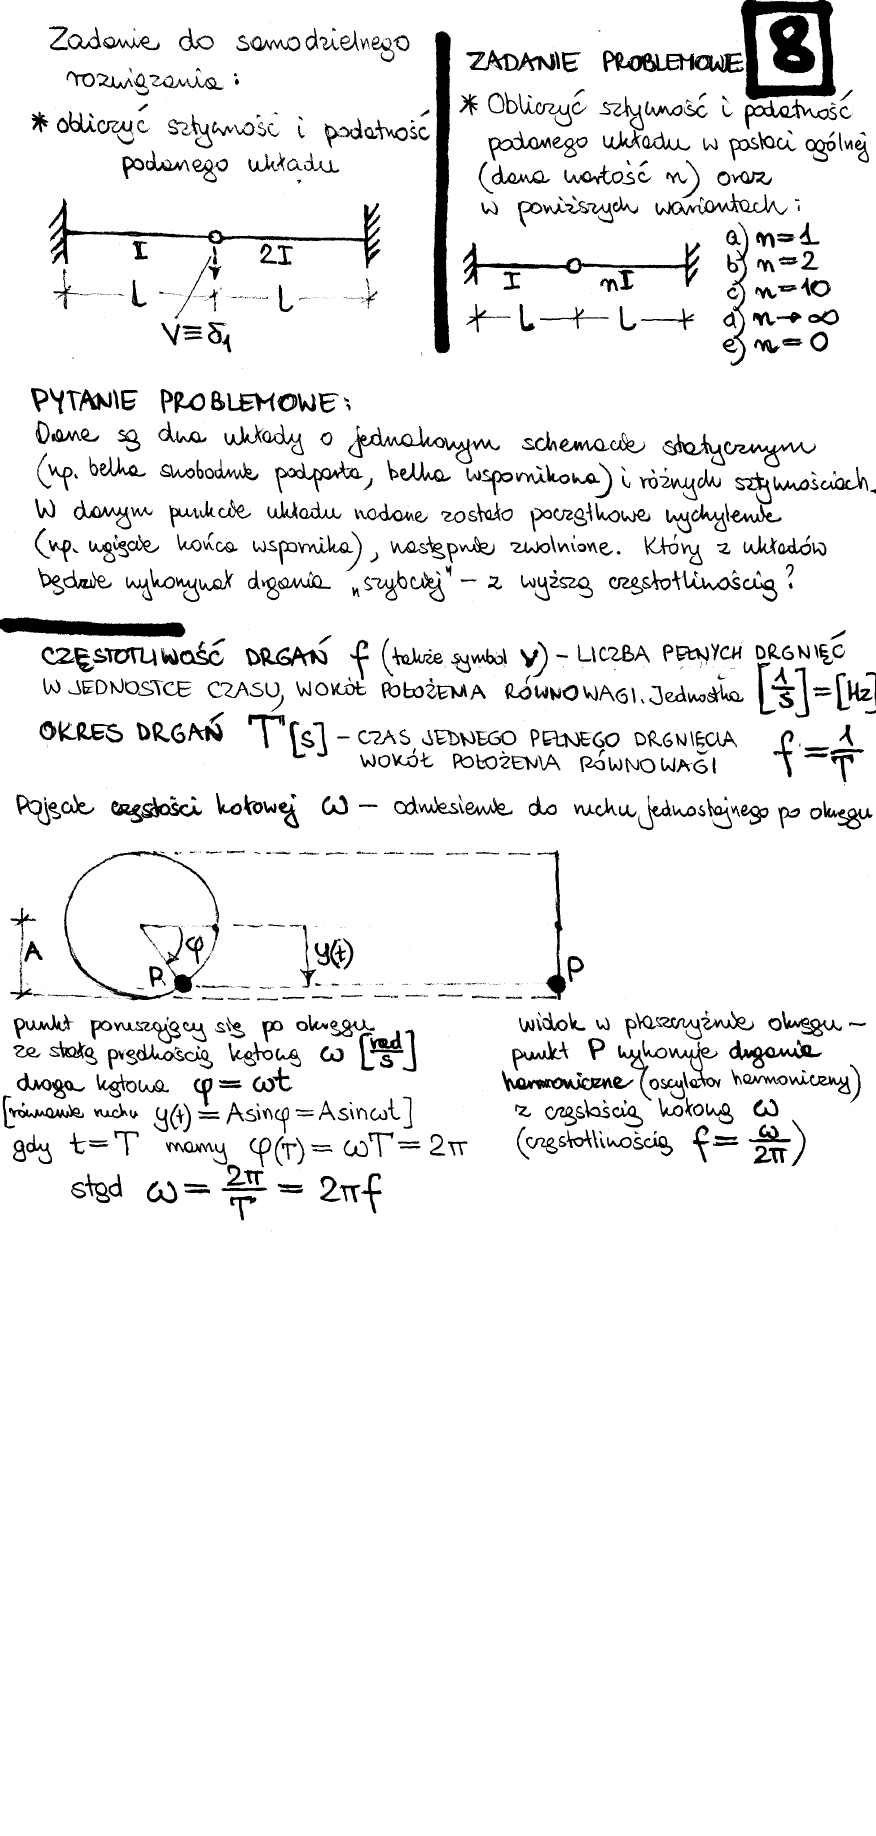 Zadanie do samodzielnego
rozwiązania:
* obliczyć sztywność i podatność
podanego układu
I
2I
L
L
V≡δ1
8
ZADANIE PROBLEMOWE
* Obliczyć sztywność i podatność
podanego układu w postaci ogólnej
(dana wartość n) oraz
w poniższych wariantach:
a) n=1
b) n=2
c) n=10
d) n→∞
e) n=0
I
nI
L
L
PYTANIE PROBLEMOWE:
Dane są dwa układy o jednakowym schemacie statycznym
(np. belka swobodnie podparta, belka wspornikowa) i różnych sztywnościach.
W danym punkcie układu nadane zostało początkowe wychylenie
(np. ugięcie końca wspornika), następnie zwolnione. Który z układów
będzie wykonywał drgania „szybciej" – z wyższą częstotliwością?
CZĘSTOTLIWOŚĆ DRGAŃ f (także symbol ν) – LICZBA PEŁNYCH DRGNIĘĆ
W JEDNOSTCE CZASU, WOKÓŁ POŁOŻENIA RÓWNOWAGI. Jednostka [1/s]=[Hz]
OKRES DRGAŃ T [s] – CZAS JEDNEGO PEŁNEGO DRGNIĘCIA
WOKÓŁ POŁOŻENIA RÓWNOWAGI
f=1/T
Pojęcie częstości kołowej ω – odniesienie do ruchu jednostajnego po okręgu
A
φ
y(t)
P
P
punkt poruszający się po okręgu
ze stałą prędkością kątową ω [rad/s]
droga kątowa φ=ωt
[równanie ruchu y(t)=Asinφ=Asinωt]
gdy t=T mamy φ(T)=ωT=2π
stąd ω=2π/T=2πf
widok w płaszczyźnie okręgu –
punkt P wykonuje drgania
harmoniczne (oscylator harmoniczny)
z częstością kołową ω
(częstotliwością f=ω/2π)